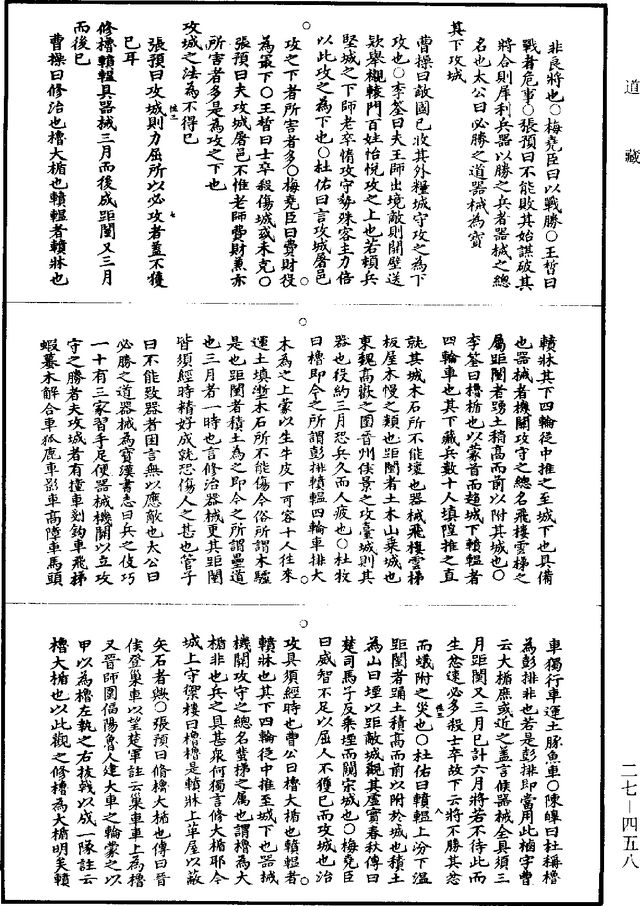 道藏
非良將也○梅堯臣曰以戰勝○王晳曰
戰者危事○張預曰不能敗其始謀破其
將合則犀利兵器以勝之兵者器械之總
名也太公曰必勝之道器械為寶
其下攻城
曹操曰敵國已收其外糧城守攻之為下
攻也○李筌曰夫王師出境敵則開壁送
款舉櫬轅門百姓怡悅攻之上也若頓兵
堅城之下師老卒惰攻守勢殊客主力倍
以此攻之為下也○杜佑曰言攻城屠邑
攻之下者所害者多○梅堯臣曰費財役
為最下○王晳曰士卒殺傷城或未克○
張預曰夫攻城屠邑不惟老師費財兼亦
所害者多是為攻之下也
攻城之法為不得已
張預曰攻城則力屈所以必攻者蓋不獲
已耳
修櫓轒轀具器械三月而後成距闉又三月
而後已
曹操曰修治也櫓大楯也轒轀者轒牀也
轒牀其下四輪從中推之至城下也具備
也器械者機關攻守之總名飛樓雲梯之
屬距闉者踴土積高而前以附其城也○
李筌曰櫓楯也以蒙首而趨城下轒轀者
四輪車也其下藏兵數十人填隍推之直
就其城木石所不能壞也器械飛樓雲梯
板屋木幔之類也距闉者土木山乘城也
東魏高歡之圍晉州侯景之攻臺城則其
器也役約三月恐兵久而人疲也○杜牧
曰櫓即今之所謂彭排轒轀四輪車排大
木為之上蒙以生牛皮下可容十人往來
運土填塹木石所不能傷今俗所謂木驢
是也距闉者積土為之即今之所謂壘道
也三月者一時也言修治器械更其距闉
皆須經時精好成就恐傷人之甚也管子
曰不能致器者困言無以應敵也太公曰
必勝之道器械為寶漢書志曰兵之伎巧
一十有三家習手足便器械機關以立攻
守之勝者夫攻城者有撞車剗鉤車飛梯
蝦蟇木解合車狐鹿車影車高障車馬頭
車獨行車運土豚魚車○陳皥曰杜稱櫓
為彭排非也若是彭排即當用此楯字曹
云大楯庶或近之蓋言候器械全具須三
月距闉又三月已計六月將若不待此而
生忿速必多殺士卒故下云將不勝其忿
而蟻附之災也○杜佑曰轒轀上汾下溫
距闉者踊土積高而前以附於城也積土
為山曰堙以距敵城觀其虛實春秋傳曰
楚司馬子反乘堙而闚宋城也○梅堯臣
曰威智不足以屈人不獲已而攻城也治
攻具須經時也曹公曰櫓大楯也轒轀者
轒牀也其下四輪從中推至城下也器械
機關攻守之總名蜚梯之屬也謂櫓為大
楯非也兵之具甚眾何獨言修大楯耶今
城上守禦樓曰櫓櫓是轒牀上革屋以蔽
矢石者歟○張預曰修櫓大楯也傳曰晉
侯登巢車以望楚軍註云巢車車上為櫓
又晉師圍偪陽魯人建大車之輪蒙之以
甲以為櫓左執之右拔戟以成一隊註云
櫓大楯也以此觀之修櫓為大楯明矣轒
二七—四五八